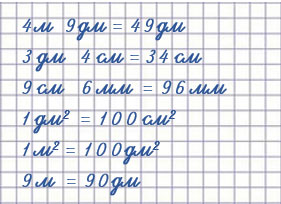 4м 9дм = 49дм
3дм 4см = 34см
9см 6мм = 96мм
1дм² = 100см²
1м² = 100дм²
9м = 90дм